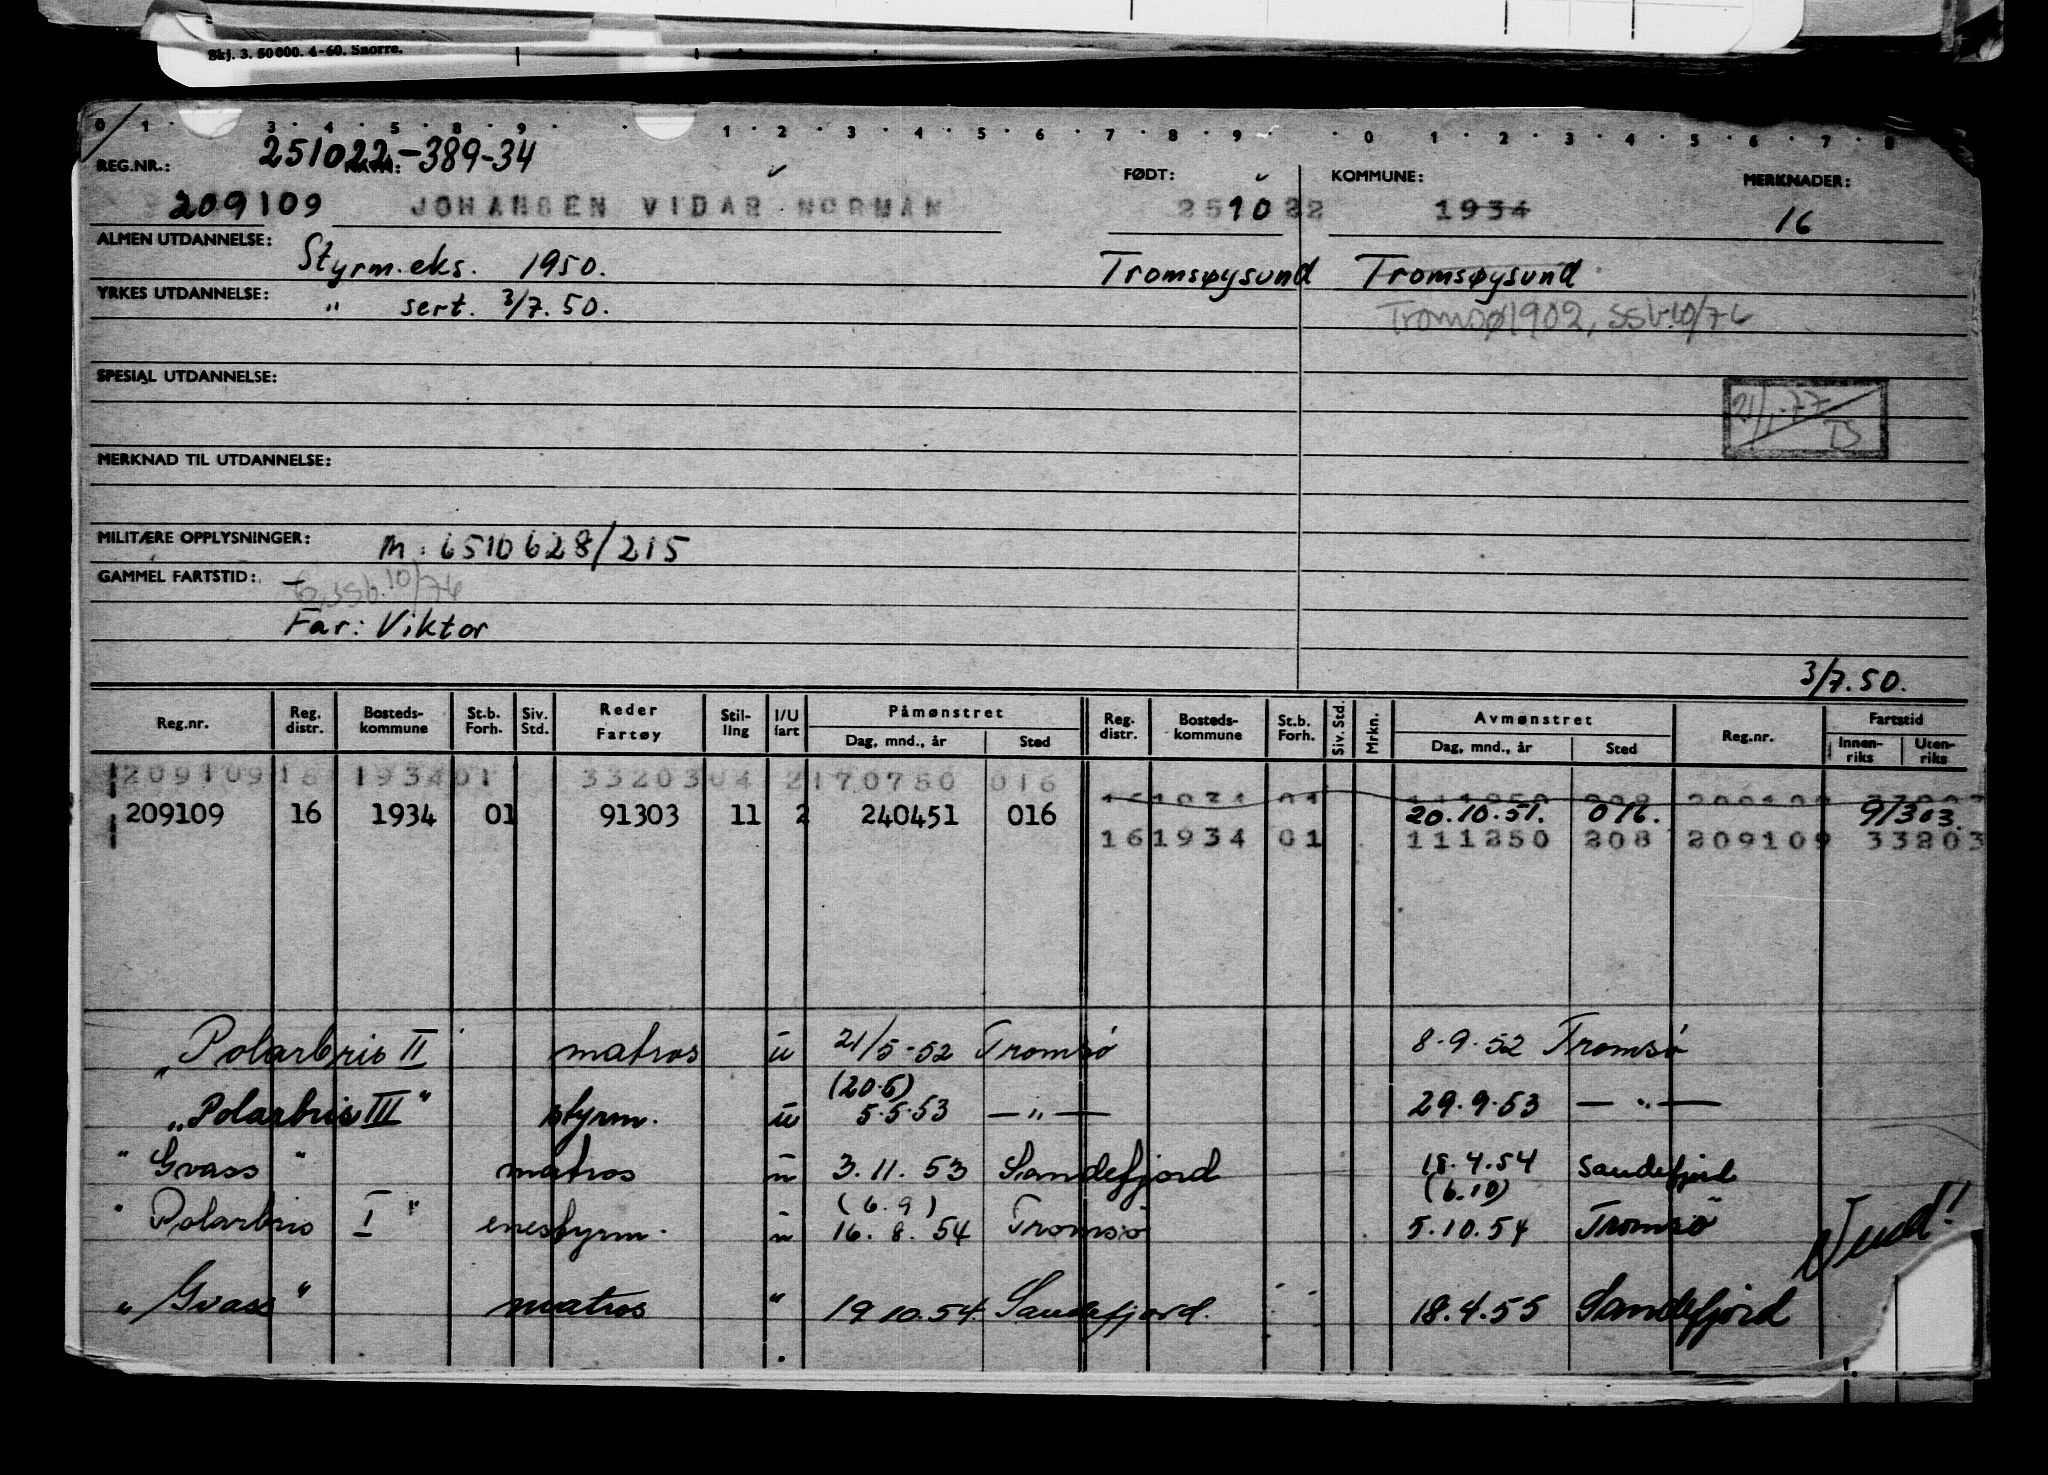 Skj. 3. 50 000. 4-60. Snorre.
0 1 3 4 5 8 9 1 2 3 4 5 6 7 8 9 0 1 2 3 4 5 6 7 8
251022-389-34
REG.NR.: NAVN: FØDT: KOMMUNE: MERKNADER:
209109 JOHANSEN VIDAR NORMAN 251022 1934 16
ALMEN UTDANNELSE: Styrm.eks. 1950. Tromsøysund Tromsøysund
YRKES UTDANNELSE: " sert. 3/7.50. Tromsø 1902, ssb 10/76
SPESIAL UTDANNELSE:
21/1-77 TS
MERKNAD TIL UTDANNELSE:
MILITÆRE OPPLYSNINGER: M: 6510628/215
GAMMEL FARTSTID: –
ssb. 10/76
Far: Viktor
3/7.50.
Reg.nr. Reg. distr. Bosteds-kommune St.b. Forh. Siv. Std. Reder Fartøy Stil-ling I/U fart Påmønstret Dag, mnd., år Sted Reg. distr. Bosteds-kommune St.b. Forh. Siv. Std. Mrkn. Avmønstret Dag, mnd., år Sted Reg.nr. Fartstid Innen-riks Uten-riks
209109 16 1934 01 33203 04 2 170750 016
209109 16 1934 01 91303 11 2 240451 016 20.10.51. 016. 91303.
16 1934 01 111250 208 209109 33203
„Polarbris II matros u 21/5-52 Tromsö 8-9-52 Tromsö
(20.6)
„Polarbris III" styrm. u 5.5.53 — " — 29.9.53 — " —
" Gvass " matros u 3.11.53 Sandefjord 18.4.54 Sandefjord
(6.9) (6.10)
" Polarbris I " enestyrm. u 16.8.54 Tromsö 5.10.54 Tromsö
Vend!
„ Gvass " matros " 19.10.54. Sandefjord. 18.4.55 Sandefjord